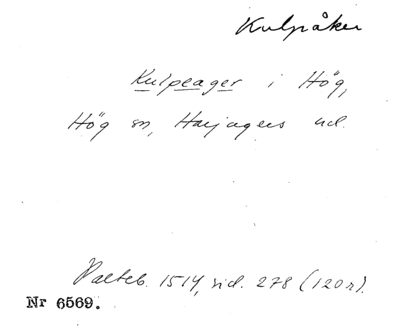 Kulpåker
Kulpeager i Hög,
Hög sn, Harjagers hd.
Palteb. 1514, sid. 278 (120r).
Nr 6569.